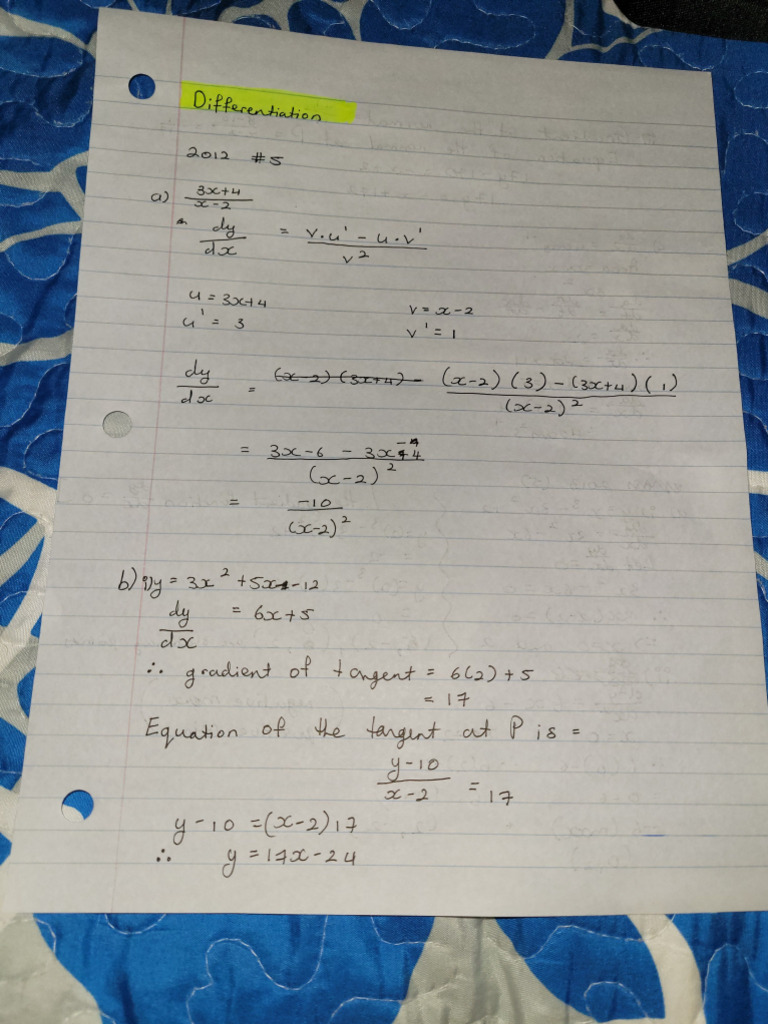 Differentiation
2012 #5
a) 3x+4
x-2
dy = v.u' - u.v'
dx v²
u = 3x+4 v = x-2
u' = 3 v' = 1
dy = (x-2)(3x+4) - (x-2)(3) - (3x+4)(1)
dx (x-2)²
= 3x-6 - 3x-4
(x-2)²
= -10
(x-2)²
b) i) y = 3x² + 5x - 12
dy = 6x+5
dx
∴ gradient of tangent = 6(2) + 5
= 17
Equation of the tangent at P is =
y-10
x-2 = 17
y-10 = (x-2)17
∴ y = 17x - 24